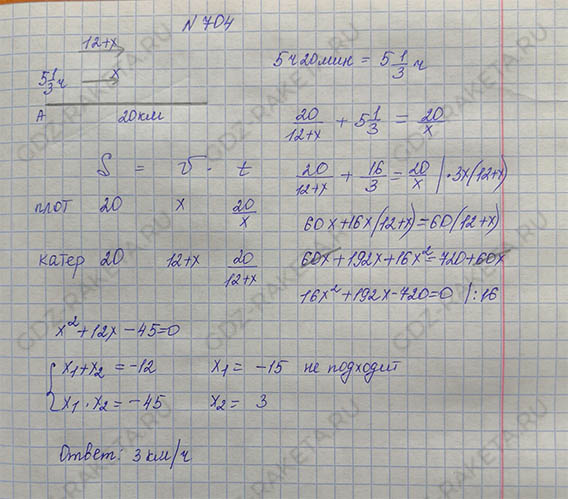 N 704
12+x
5 1/3 ч x
A 20км
5ч20мин = 5 1/3 ч
20/(12+x) + 5 1/3 = 20/x
S = v · t
плот 20 x 20/x
катер 20 12+x 20/(12+x)
20/(12+x) + 16/3 = 20/x | ·3x(12+x)
60x+16x(12+x)=60(12+x)
60x+192x+16x²=720+60x
16x²+192x-720=0 |:16
x²+12x-45=0
{ x₁+x₂ = -12 x₁ = -15 не подходит
x₁·x₂ = -45 x₂ = 3
Ответ: 3 км/ч
GDZ-RAKETA.RU